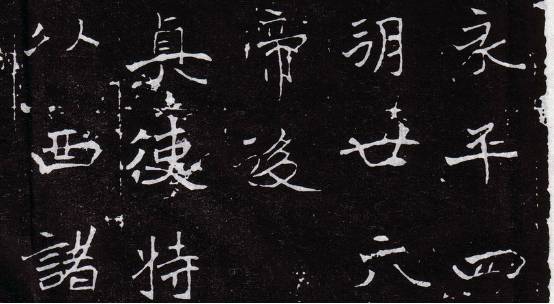 永平四
明廿六
帝後
真使持
以西諸